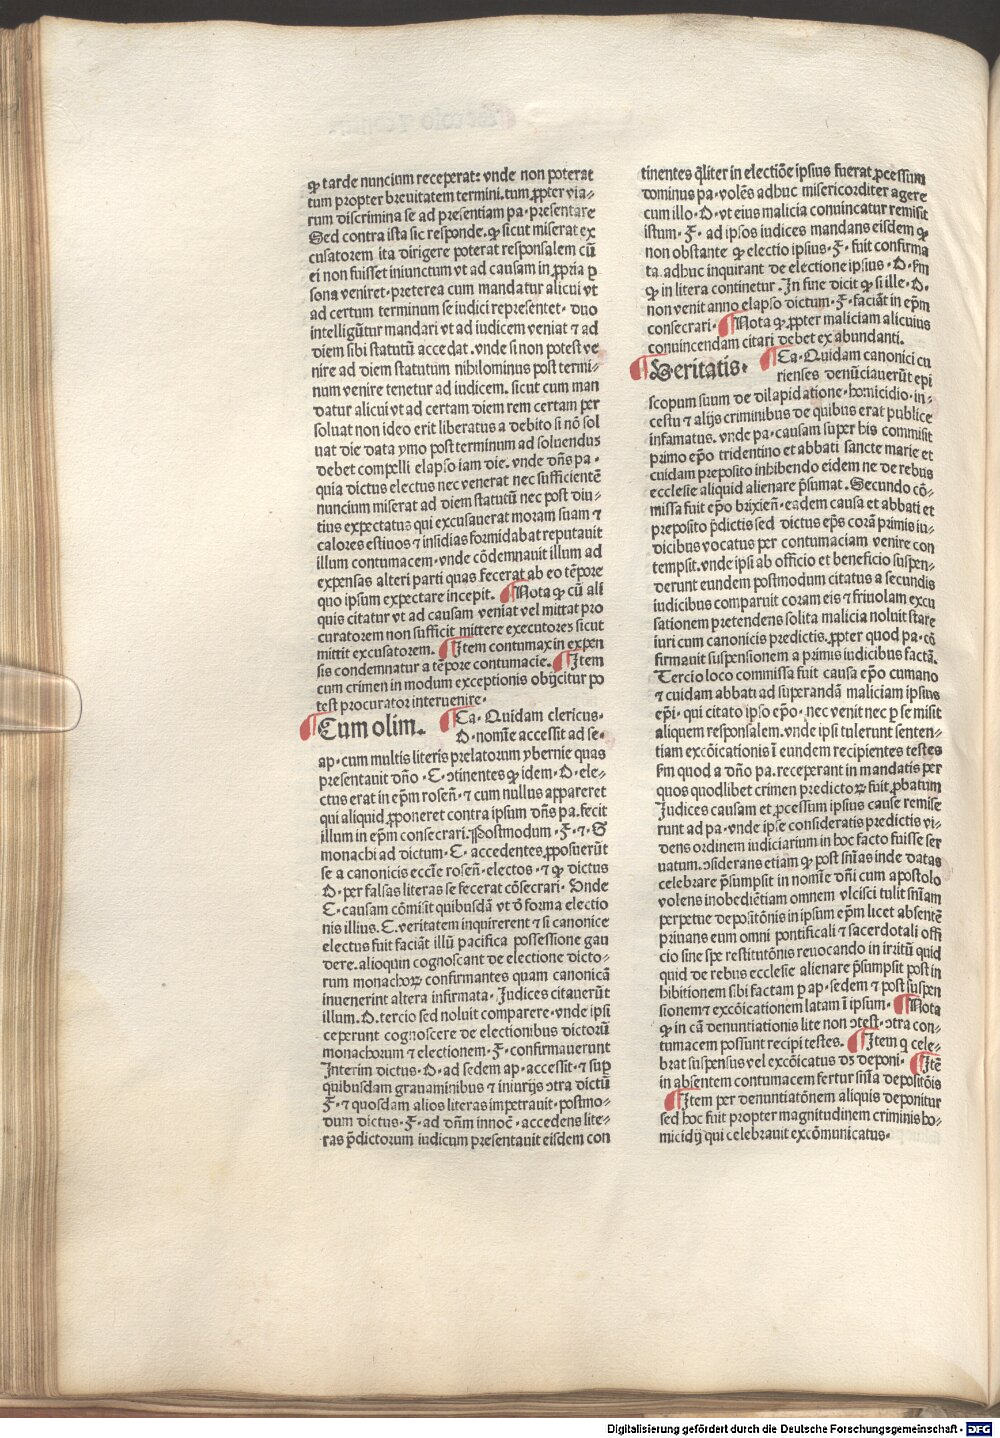 ꝙ tarde nuncium receperat: vnde non poterat
tum propter breuitatem termini.tum ꝓpter via⸗
rum discrimina se ad presentiam pa·presentare
Sed contra ista sic responde.ꝙ sicut miserat ex
cusatorem ita dirigere poterat responsalem cū
ei non fuisset iniunctum vt ad causam in ꝓpria ꝑ
sona veniret·preterea cum mandatur alicui vt
ad certum terminum se iudici representet· duo
intelligūtur mandari vt ad iudicem veniat ⁊ ad
diem sibi statutū accedat.vnde si non potest ve
nire ad diem statutum nihilominus post termi⸗
num venire tenetur ad iudicem. sicut cum man
datur alicui vt ad certam diem rem certam per
soluat non ideo erit liberatus a debito si nō sol
uat die data ymo post terminum ad soluendus
debet compelli elapso iam die. vnde dn̄s pa·
quia dictus electus nec venerat nec sufficientē
nuncium miserat ad diem statutū nec post diu⸗
tius expectatus qui excusauerat moram suam ⁊
calores estiuos ⁊ insidias formidabat reputauit
illum contumacem·vnde cōdemnauit illum ad
expensas alteri parti quas fecerat ab eo tēpore
quo ipsum expectare incepit. ¶Nota ꝙ cū ali
quis citatur vt ad causam veniat vel mittat pro
curatorem non sufficit mittere executores sicut
mittit excusatorem. ¶Item contumax in expen
sis condemnatur a tēpore contumacie. ¶Item
cum crimen in modum exceptionis obijcitur po
test procurator interuenire·
¶Cum olim. ¶Ca·Quidam clericus·
D·nomīe accessit ad se⸗
ap·cum multis literis prelatorum ybernie quas
presentauit dn̄o ·C·ↄtinentes ꝙ idem·D·ele⸗
ctus erat in ep̄m rosen̄·⁊ cum nullus appareret
qui aliquid ꝓponeret contra ipsum dn̄s pa.fecit
illum in ep̄m consecrari.Postmodum ·F·⁊·G
monachi ad dictum·C· accedentes ꝓposuerūt
se a canonicis eccl̄e rosen̄·electos·⁊ ꝙ dictus
D·per falsas literas se fecerat cōsecrari· Vnde
C·causam cōmisit quibusdā vt d̄ forma electio
nis illius. C.veritatem inquirerent ⁊ si canonice
electus fuit faciāt illū pacifica possessione gau
dere.alioquin cognoscant de electione dicto⸗
rum monachoꝝ confirmantes quam canonicā
inuenerint altera infirmata· Judices citauerūt
illum.D.tercio sed noluit comparere·vnde ipsi
ceperunt cognoscere de electionibus dictorū
monachorum ⁊ electionem·F·confirmauerunt
Interim dictus·D·ad sedem ap·accessit·⁊ suꝑ
quibusdam grauaminibus ⁊ iniurijs ↄtra dictū
F·⁊ quosdam alios literas impetrauit·postmo⸗
dum dictus·F·ad dn̄m innoc̄·accedens lite⸗
ras p̄dictorum iudicum presentauit eisdem con
tinentes q̄liter in electiōe ipsius fuerat ꝓcessum
dominus pa·volēs adhuc misericorditer agere
cum illo·D·vt eius malicia conuincatur remisit
istum·F· ad ipsos iudices mandans eisdem ꝙ
non obstante ꝙ electio ipsius·F·fuit confirma
ta adhuc inquirant de electione ipsius·D·fm
ꝙ in litera continetur.In fine dicit ꝙ si ille·D·
non venit anno elapso dictum·F·faciāt in ep̄m
consecrari· ¶Nota ꝙ ꝓpter maliciam alicuius
conuincendam citari debet ex abundanti.
¶Veritatis· ¶Ca·Quidam canonici cu
rienses denūciauerūt epi
scopum suum de dilapidatione·homicidio·in⸗
cestu ⁊ alijs criminibus de quibus erat publice
infamatus. vnde pa·causam super his commisit
primo ep̄o tridentino et abbati sancte marie et
cuidam preposito inhibendo eidem ne de rebus
ecclesie aliquid alienare p̄sumat.Secundo cō⸗
missa fuit ep̄o brixien̄·eadem causa et abbati et
preposito p̄dictis sed dictus ep̄s corā primis iu⸗
dicibus vocatus per contumaciam venire con
tempsit.vnde ipsi ab officio et beneficio suspen⸗
derunt eundem postmodum citatus a secundis
iudicibus comparuit coram eis ⁊ friuolam excu
sationem pretendens solita malicia noluit stare
iuri cum canonicis predictis.ꝓpter quod pa·cō
firmauit suspensionem a primis iudicibus factā.
Tercio loco commissa fuit causa ep̄o cumano
⁊ cuidam abbati ad superandā maliciam ipsius
ep̄i·qui citato ipso ep̄o·nec venit nec ꝑ se misit
aliquem responsalem.vnde ipsi tulerunt senten⸗
tiam excōicationis ī eundem recipientes testes
fm quod a dn̄o pa.receperant in mandatis per
quos quodlibet crimen predictoꝝ fuit ꝓbatum
Judices causam et ꝓcessum ipsius cause remise
runt ad pa·vnde ipse consideratis predictis vi⸗
dens ordinem iudiciarium in hoc facto fuisse ser
uatum.ↄsiderans etiam ꝙ post sn̄ias inde datas
celebrare p̄sumpsit in nomīe dn̄i cum apostolo
volens inobediētiam omnem vlcisci tulit sn̄iam
perpetue depositōnis in ipsum ep̄m licet absentē
priuans eum omni pontificali ⁊ sacerdotali offi
cio sine spe restitutōnis reuocando in irritū quid
quid de rebus ecclesie alienare p̄sumpsit post in
hibitionem sibi factam ꝑ ap·sedem ⁊ post suspen
sionem ⁊ excōicationem latam ī ipsum· ¶Nota
ꝙ in cā denuntiationis lite non ↄtest·ↄtra con⸗
tumacem possunt recipi testes. ¶Item q cele⸗
brat suspensus vel excōicatus dꝫ deponi· ¶Itē
in absentem contumacem fertur sn̄ia depositōis
¶Item per denuntiatōnem aliquis deponitur
sed hoc fuit propter magnitudinem criminis ho⸗
micidij qui celebrauit excōmunicatus·
Digitalisierung gefördert durch die Deutsche Forschungsgemeinschaft - DFG